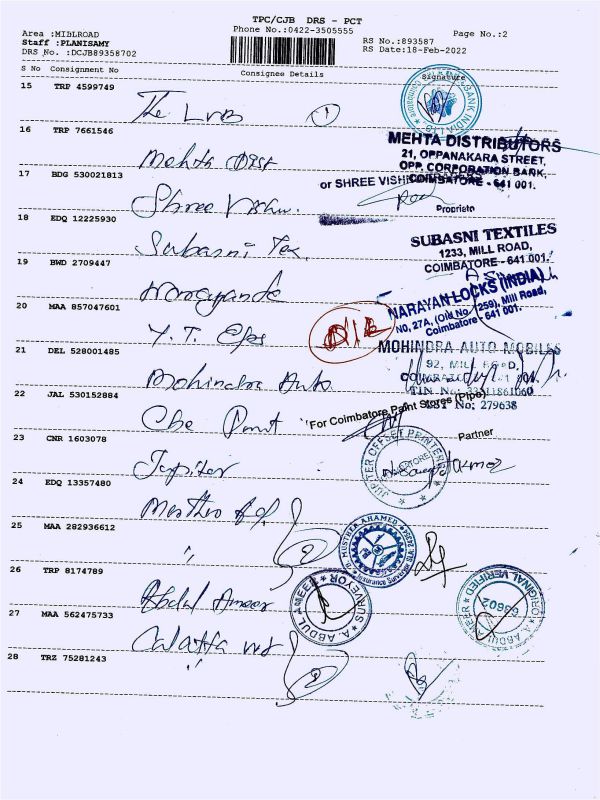 TPC/CJB DRS - PCT
Phone No.:0422-3505555
Page No.:2
Area :MIBLROAD
Staff :PLANISAMY
DRS No. :DCJB89358702
RS No.:893587
RS Date:18-Feb-2022
S No Consignment No Consignee Details Signature
15 TRP 4599749
The LVB 1
16 TRP 7661546
MEHTA DISTRIBUTORS
21, OPPANAKARA STREET,
OPP. CORPORATION BANK,
COIMBATORE - 641 001.
Mehta Dist
17 BDG 530021813
or SHREE VISHNU
Shree Vishnu
Proprieto
18 EDQ 12225930
SUBASNI TEXTILES
1233, MILL ROAD,
COIMBATORE - 641 001.
Subasni Tex
19 BWD 2709447
NARAYAN LOCKS (INDIA)
NO, 27A, (Old No. 1259), Mill Road,
Coimbatore - 641 001.
Narayanda
20 MAA 857047601
Y. T. Eps
21 DEL 528001485
MOHINDRA AUTO MOBILES
92, MILL ROAD,
Mohindra Auto
TIN No: 33311861060
CST No: 279638
22 JAL 530152884
Cbe Paint
For Coimbatore Paint Stores (Pipe)
Partner
23 CNR 1603078
JUPITER OFFSET PRINTERS
Jupiter
24 EDQ 13357480
Musthro
25 MAA 282936612
"
MUSTHER AHAMED
26 TRP 8174789
Abdul Ameer
A. ABDUL AMEER SURVEYOR
ORIGINAL VERIFIED
27 MAA 562475733
28 TRZ 75281243
"